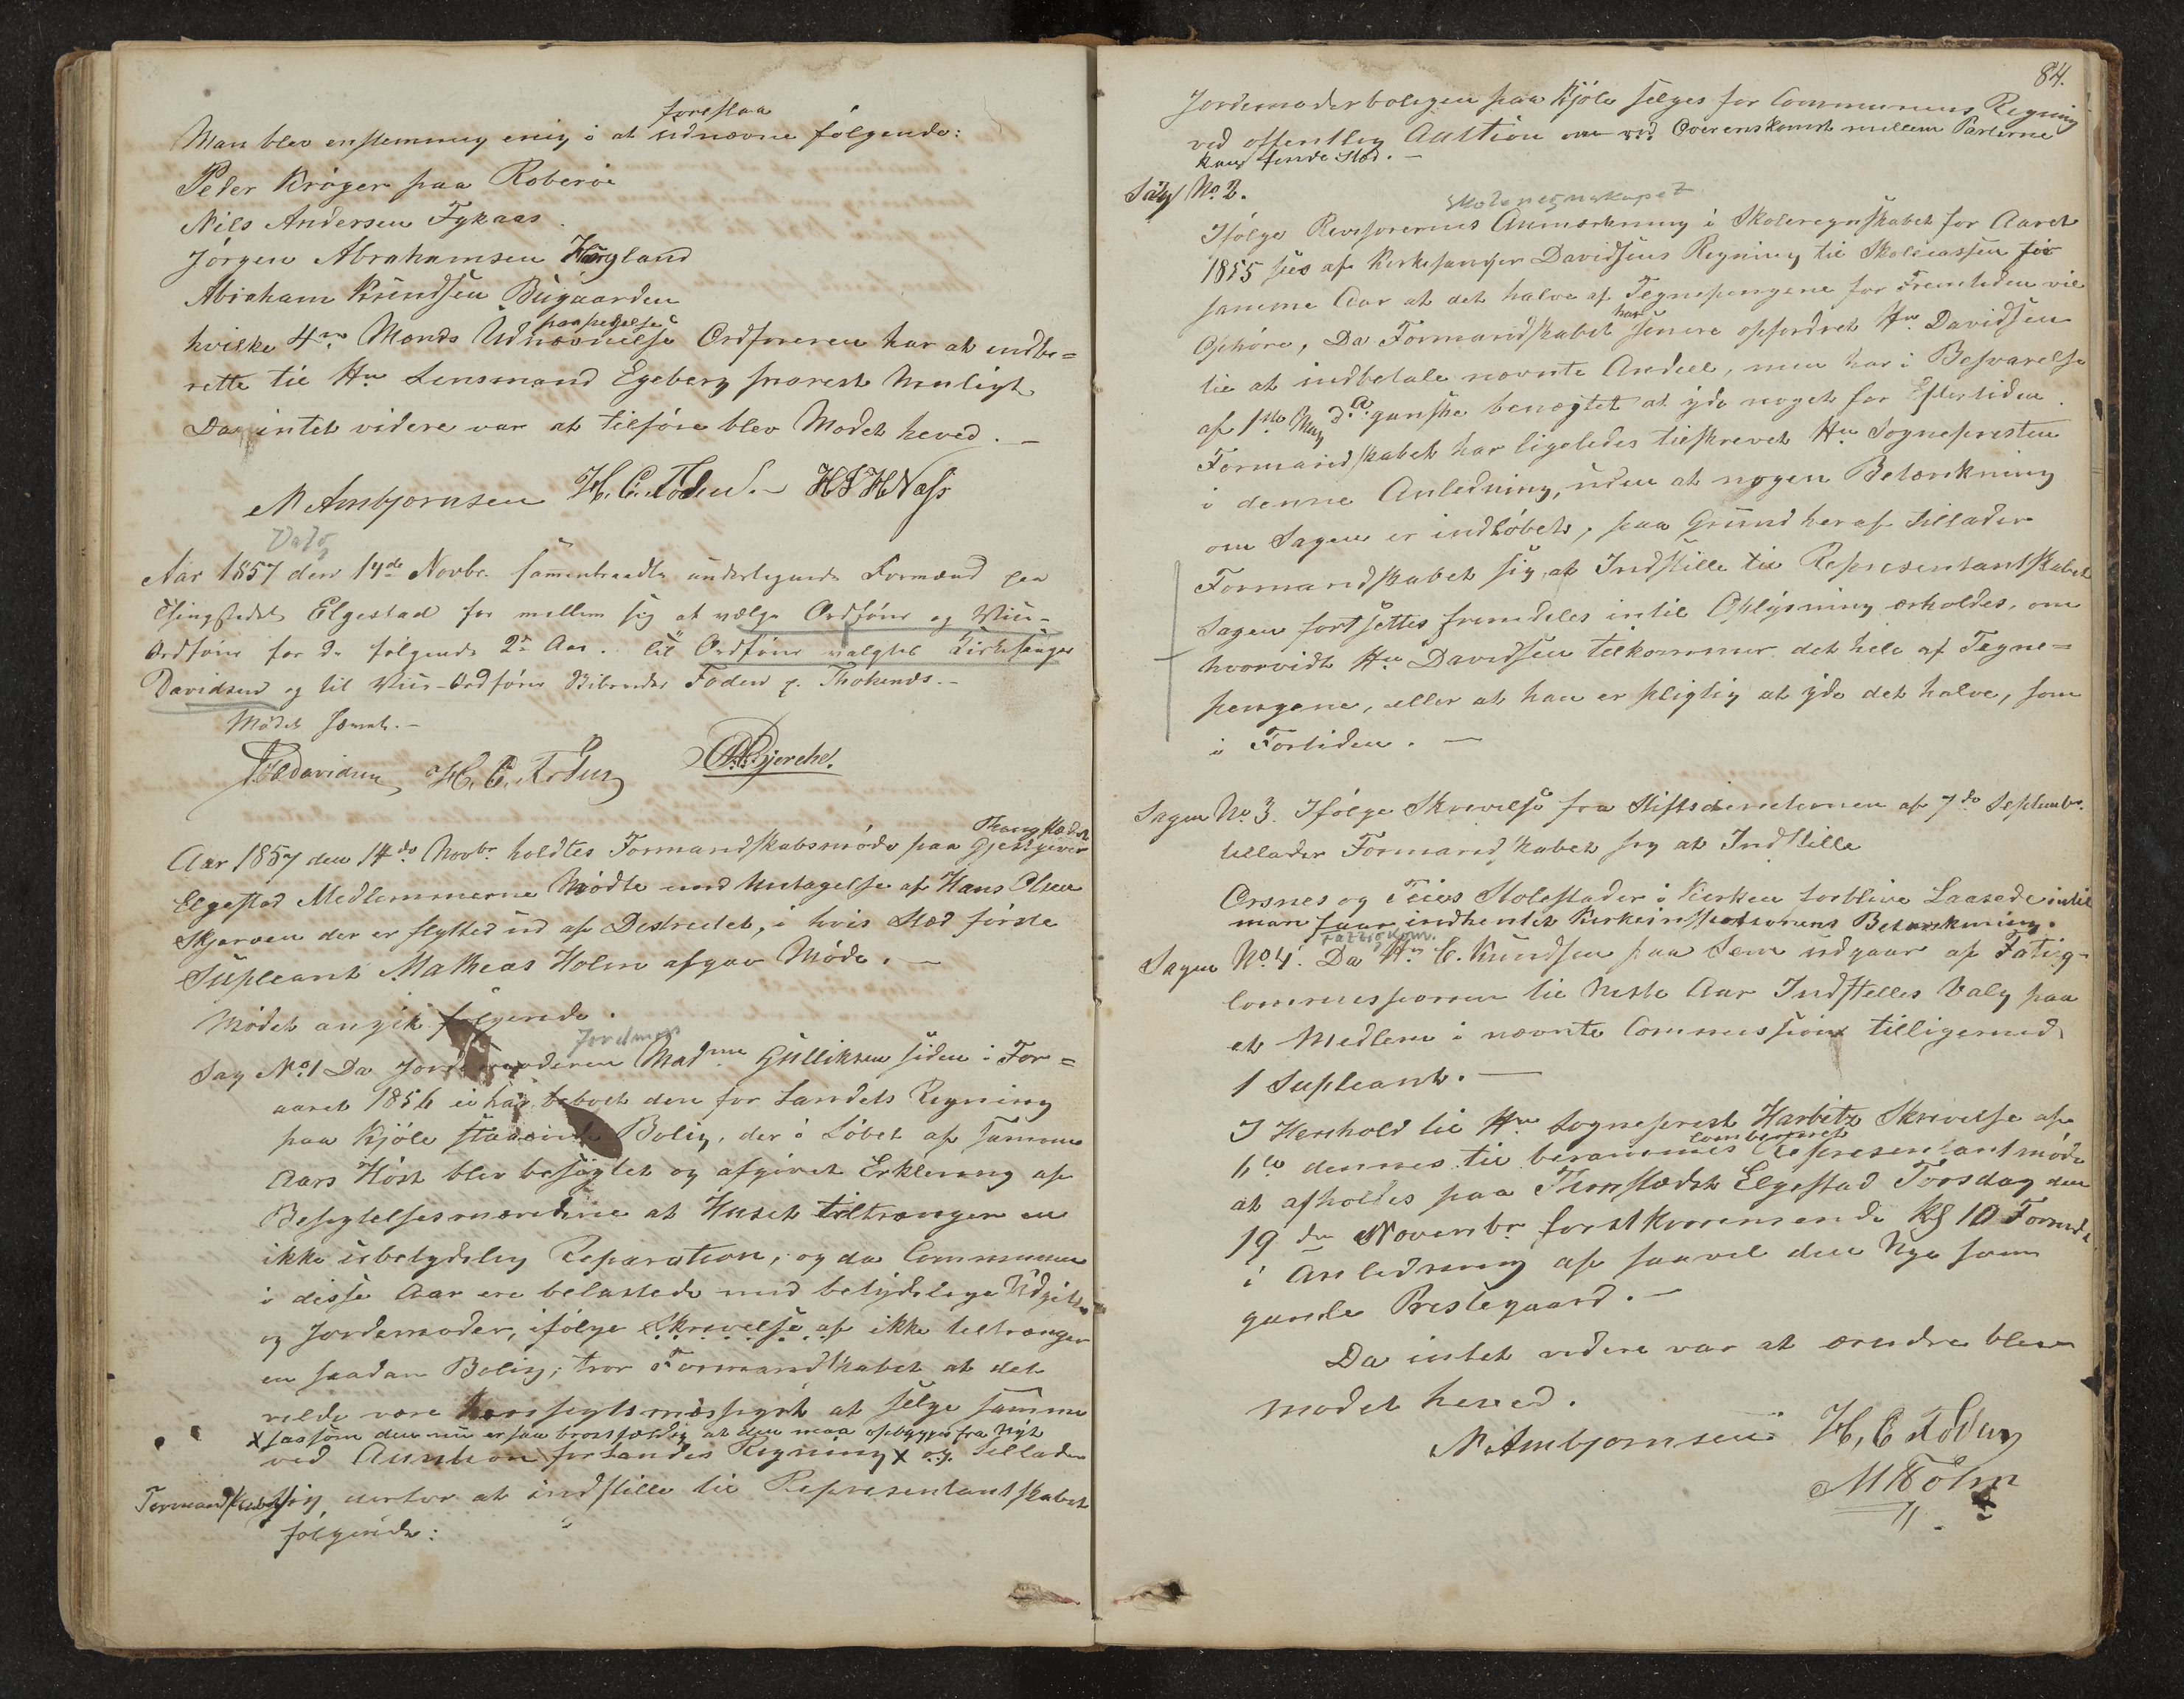 foreslaa
Man blev enstemmig enig i at udnævne følgende:
Peder Krøger paa Roberøe
Nils Andersen Fykaas
Jörgen Abrahamsen Haugland
Abraham Knudsen Bugaarden
paapegelse
hvilke 4re Mænds Udnævnelse Ordføreren har at indbe=
rette til Hr Lensmand Egeberg snarest Muligt
Da intet videre var at tilføre blev Mødet heved. –
N Ambjørnsen H. C. Foden. – HSH Næss
Valg
Aar 1857 den 14de Novbr. sammentraadte undertegnede Formænd paa
Thingstedet Elgestad for mellem sig at vælge Ordfører og Vice-
Ordfører for de følgende 2de Aar. Til Ordfører valgtes Kirkesanger
Davidsen og til Vice-Ordfører Foden p. –
Mødet hævet. –
Davidsen H. C. Foden Bjerche.
Thingstedet
Aar 1857 den 14de Novbr holdtes Formandskabsmøde paa Gjestgiver
Elgestad Medlemmerne Mødte med Untagelse af Hans Olsen
Skjerven der er flytted ud af Destrectet, i hvis Sted förste
Supleant Matheas Holm afgav Møde. –
Mødet angik følgende.
Jordmor
Sag No 1 Da Jordemoderen Madme Gulliksen siden i For=
aaret 1856 ei har beboet den for Landets Regning
paa Kjöle staaende Bolig, der i Löbet af samme
Aars Höst blev besigtet og afgivet Erklering af
Besigtelsesmændene at Huset tiltrænger en
ikke ubetydelig Reparation; og da Communen
i disse Aar ere belastede med betydelige Udgifter
og Jordemoder, ifölge Skrivelse af ikke tiltrænger
en saadan Bolig; tror Formandskabet at det
vilde være hensigtsmæssigst at selge samme
X saasom den nu er saa brøstfældig at den maa opbygges fra Nyt
ved Auction for Landets Regning X og tillader
Formandskabet sig derfor at indstille til Representantskabet
følgende:
84.
Jordemoderboligen paa Kjöle selges for Communens Regning
ved offentlig Auction om ved Overenskomst mellem Parterne
kan finde Sted. –
Sag No 2.
Skoleregnskapet
Ifölge Revisorernes Anmærkning i Skoleregnskabet for Aaret
1855 sees af Kirkesanger Davidsens Regning til Skolecassen for
samme Aar at det halve af Tegnepengene for Fremtiden vil
har
Ophöre, Da Formandskabet senere opfordret Hr Davidsen
til at indbetale nævnte Andeel, men har i Besvarelse
af 1ste May d. A. ganske benegtet at yde noget for Eftertiden.
Formandskabet har ligeledes tilskrevet Hr Sognepresten
i denne Anledning, uden at nogen Betænkning
om Sagen er indløbet, paa Grund heraf tillader
Formandskabet sig at Indstille til Representantskabet
Sagen fortsettes fremdeles intil Oplysning erholdes, om
hvorvidt Hr Davidsen tilkommer det hele af Tegne=
pengene, eller at han er pligtig at yde det halve, som
i Fortiden. –
Sagen No 3. Ifölge Skrivelse fra Stiftsdirectionen af 7de Septembr.
tillader Formandskabet sig at Indstille
Ørsnes og Teies Stolestader i Kirken forblive Laasede intil
man faar indhentet Kirkeinspectionens Betænkning.
Fattigkom.
Sagen No 4. Da Hr C. Knudsen paa Sem udgaar af Fatig-
Commissionen til Neste Aar Indstilles Valg paa
et Medlem i nævnte Commission tilligemed
1 Supleant. –
I Henhold til Hr Sogneprest Harbitz Skrivelse af
combineret
6te dennes til berammes Representantmøde
at afholdes paa Thingstædet Elgestad Torsdag den
19de Novembr forstkommende Kl 10 Formd.
i Anledning af saavel den Nye som
gamle Prestegaard. –
Da intet videre var at ærindre blev
mødet heved.
N Ambjørnsen H, C Foden
M Holm